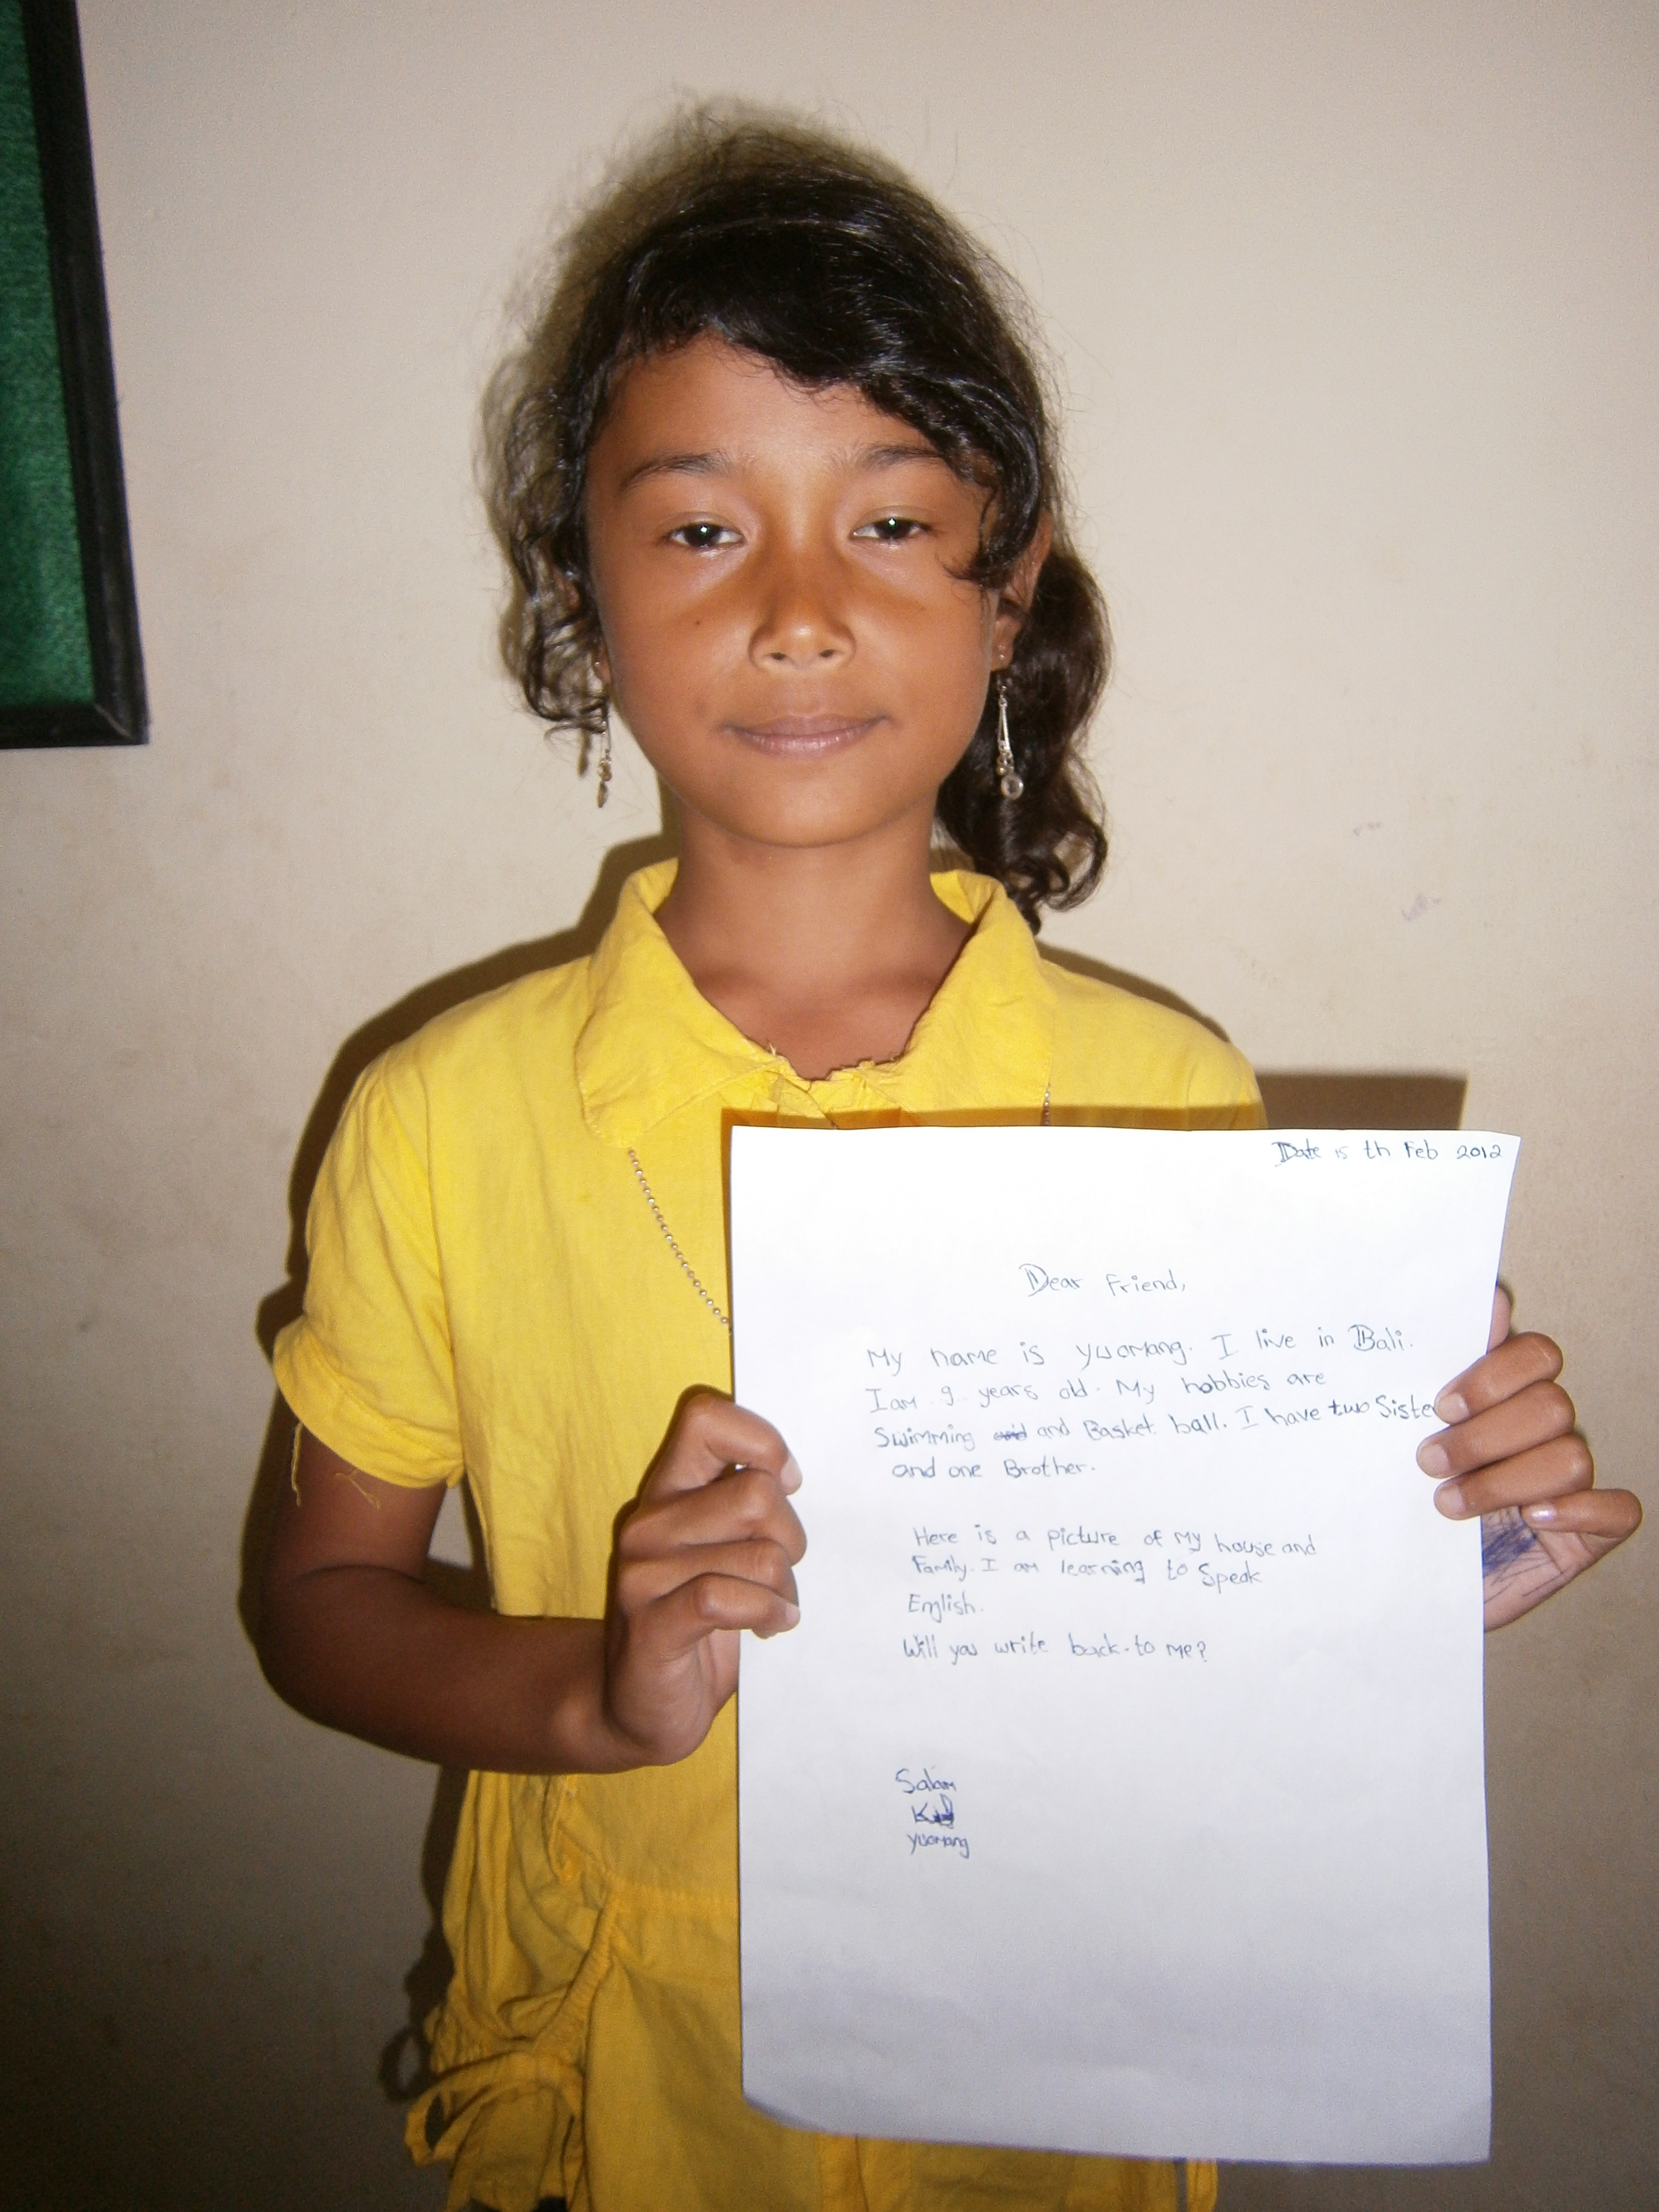 Date 15 th Feb 2012
Dear Friend,
My name is yuomang. I live in Bali.
I am 9 years old. My hobbies are
Swimming and Basket ball. I have two Siste
and one Brother.
Here is a picture of My house and
Family. I am learning to Speak
English.
Will you write back to Me?
Salam
yuomang